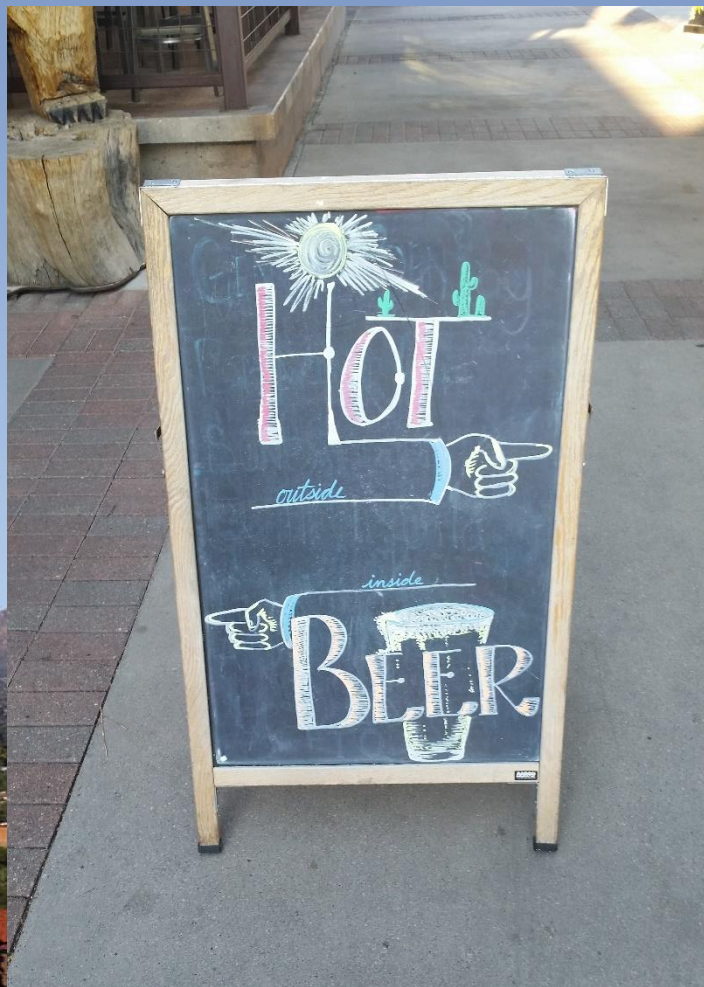 HOT
outside
inside
BEER